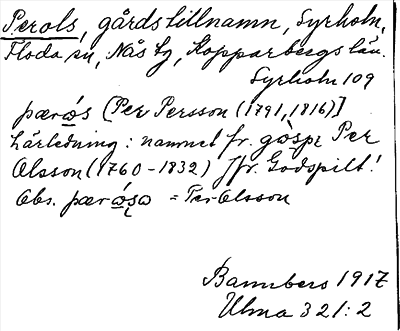 Perols, gårdstillnamn, Syrholn,
Floda sn, Nås tg, Kopparbergs län.
Syrholn 109
pærǫ́s (Per Persson (1791, 1816)]
Härledning: namnet fr. gọ̀spɩ Per
Olsson (1760-1832) Jfr. Godspilt!
Obs. pærǫ́sɷ = Per Olsson
Bannbers 1917
Ulma 321:2